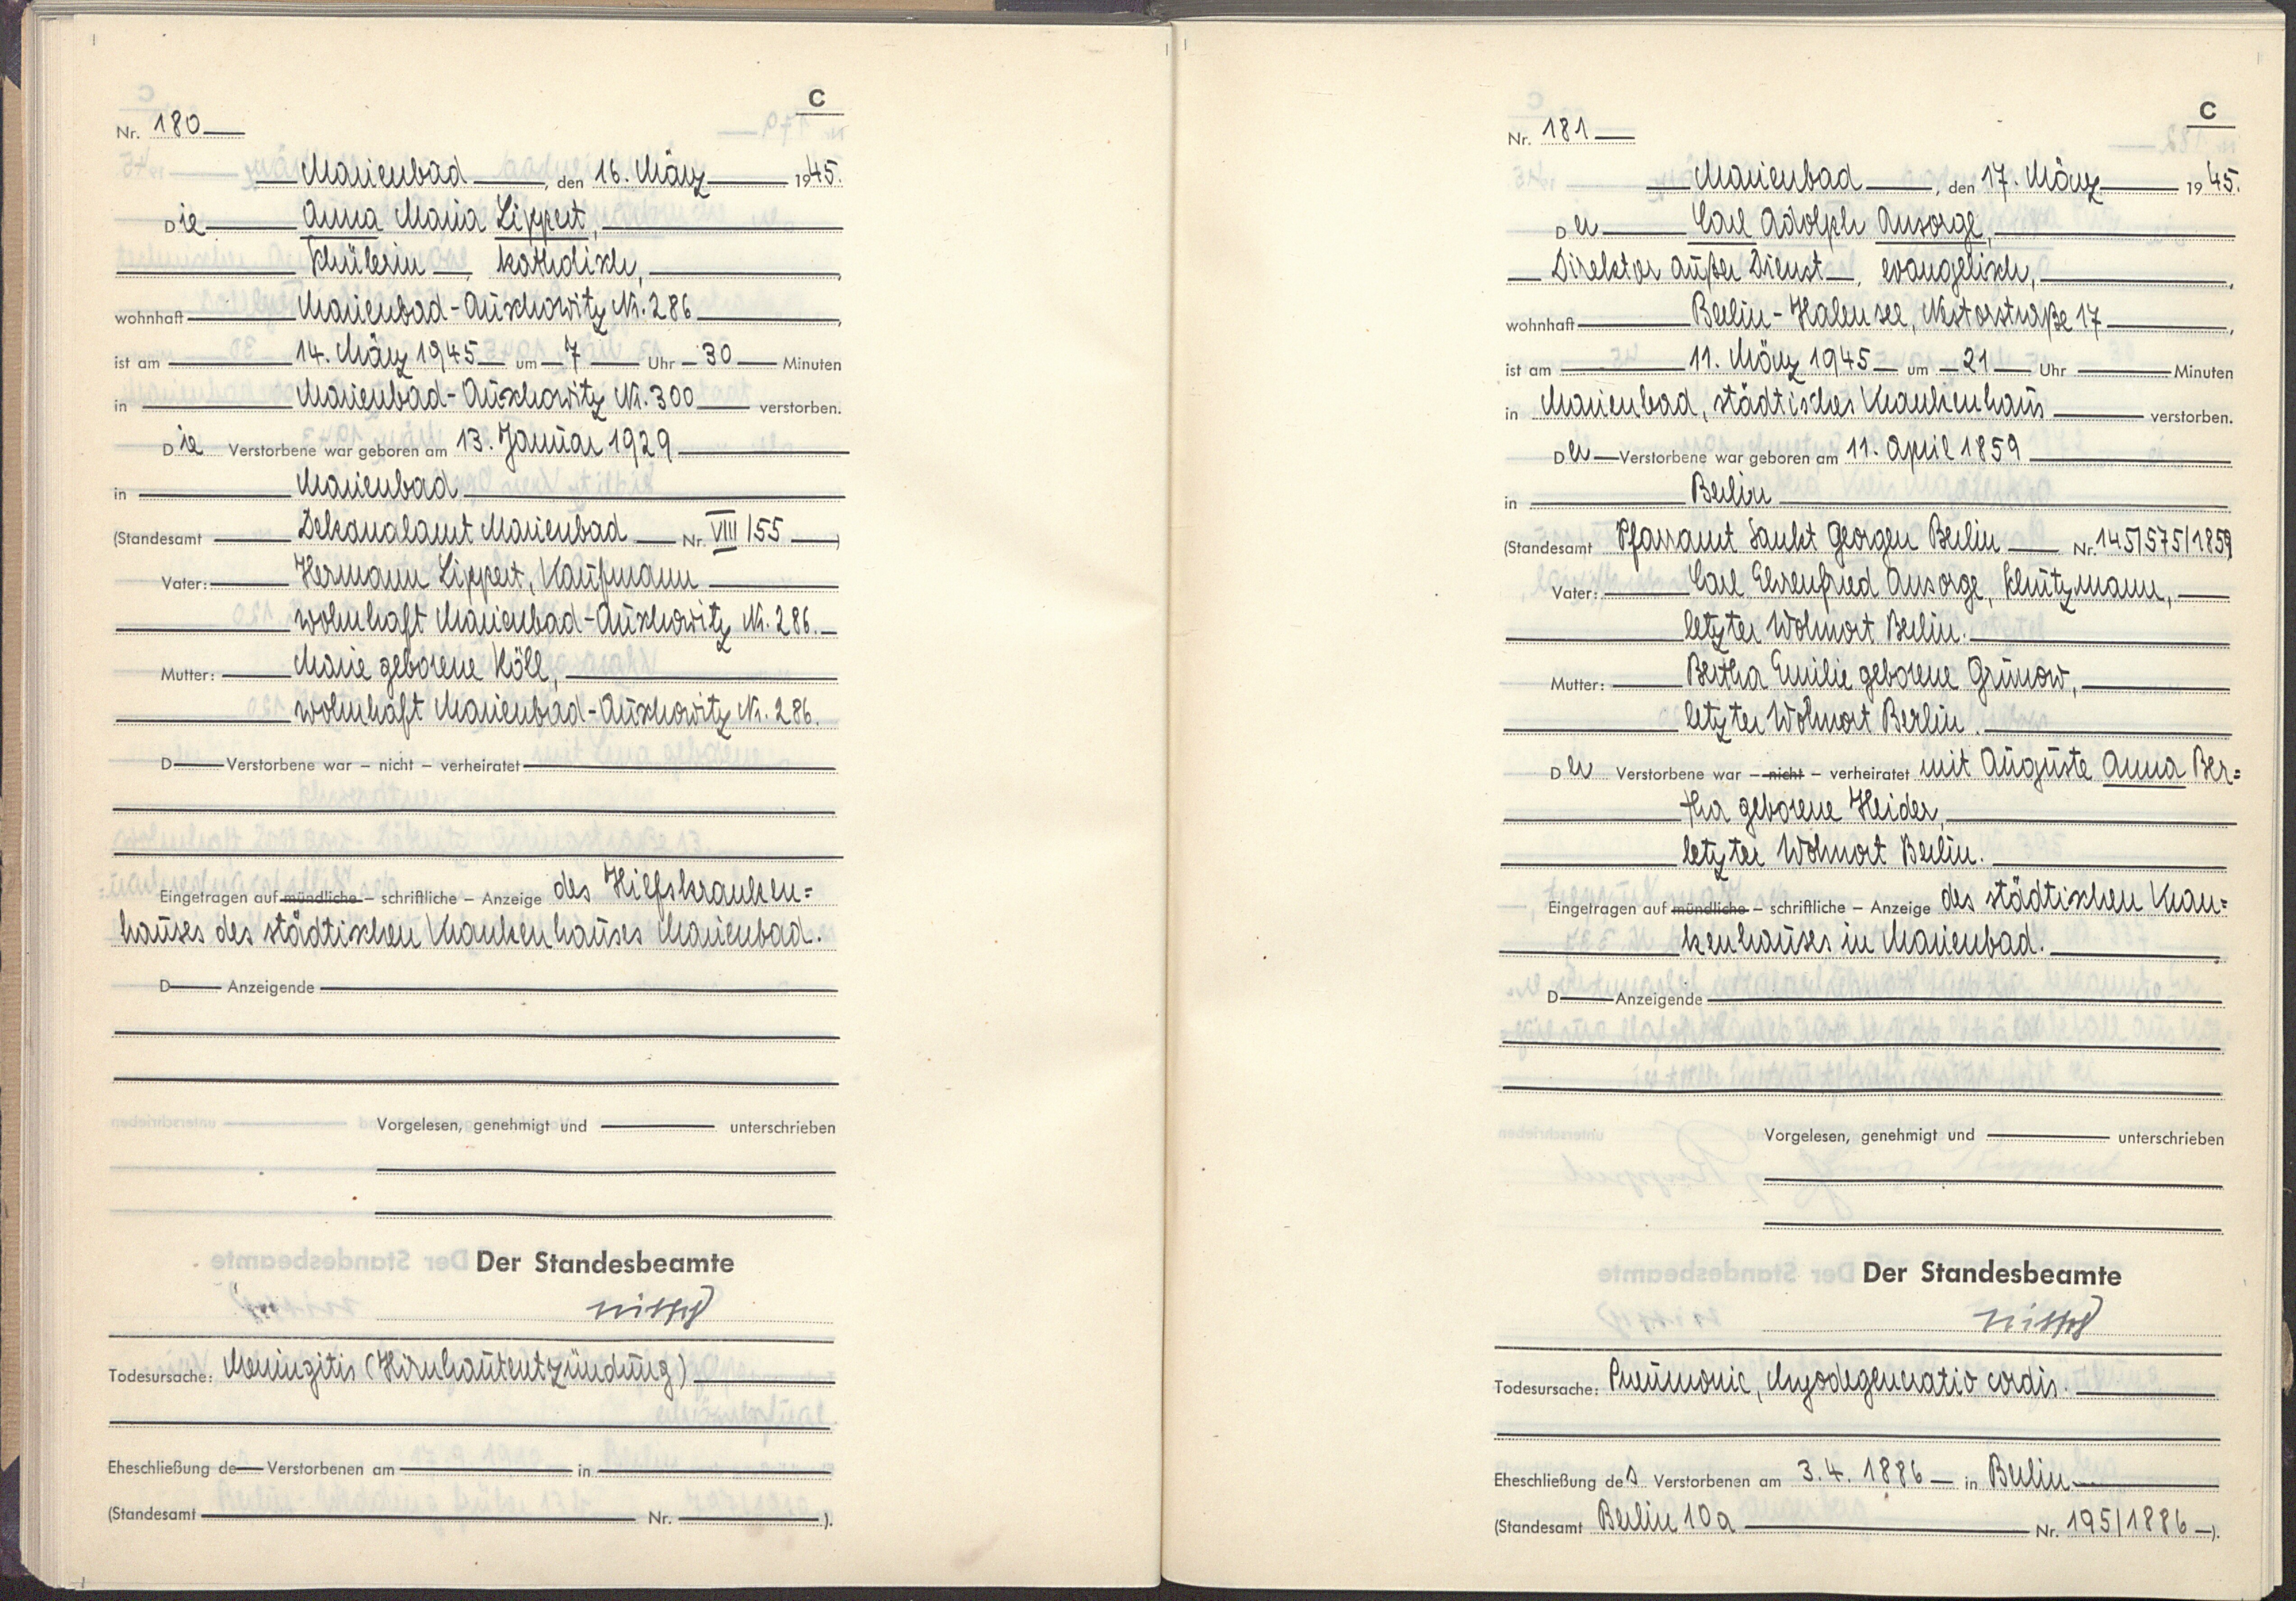 C
Nr. 180
Marienbad, den 16. März 1945.
Die Anna Maria Lippert,
Schülerin, katholisch,
wohnhaft Marienbad-Auschowitz Nr. 286,
ist am 14. März 1945 um 7 Uhr 30 Minuten
in Marienbad-Auschowitz Nr. 300 verstorben.
Die Verstorbene war geboren am 13. Januar 1929
in Marienbad
(Standesamt Dekanalamt Marienbad Nr. VIII/55)
Vater: Hermann Lippert, Kaufmann
wohnhaft Marienbad-Auschowitz Nr. 286.
Mutter: Marie geborene Köll,
wohnhaft Marienbad-Auschowitz Nr. 286.
D Verstorbene war – nicht – verheiratet
Eingetragen auf mündliche – schriftliche – Anzeige des Hilfskranken=
hauses des städtischen Krankenhauses Marienbad.
D Anzeigende
Vorgelesen, genehmigt und unterschrieben
Der Standesbeamte
Todesursache: Meningitis (Hirnhautentzündung)
Eheschließung de Verstorbenen am in
(Standesamt Nr. ).
C
Nr. 181
Marienbad, den 17. März 1945.
Der Carl Adolph Ansorge,
Direktor außer Dienst, evangelisch,
wohnhaft Berlin-Halensee, Nestorstraße 17,
ist am 11. März 1945 um 21 Uhr Minuten
in Marienbad, städtisches Krankenhaus verstorben.
Der Verstorbene war geboren am 11. April 1859
in Berlin
(Standesamt Pfarramt Sankt Georgen Berlin Nr. 145/575/1859
Vater: Carl Ehrenfried Ansorge, Schutzmann,
letzter Wohnort Berlin.
Mutter: Bertha Emilie geborene Grunow,
letzter Wohnort Berlin.
Der Verstorbene war – nicht – verheiratet mit Auguste Anna Ber=
tha geborene Heider,
letzter Wohnort Berlin.
Eingetragen auf mündliche – schriftliche – Anzeige des städtischen Kran=
kenhauses in Marienbad.
D Anzeigende
Vorgelesen, genehmigt und unterschrieben
Der Standesbeamte
Todesursache: Pneumonie, Myodegeneratio cordis.
Eheschließung des Verstorbenen am 3.4.1886 in Berlin
(Standesamt Berlin 10a Nr. 195/1886).